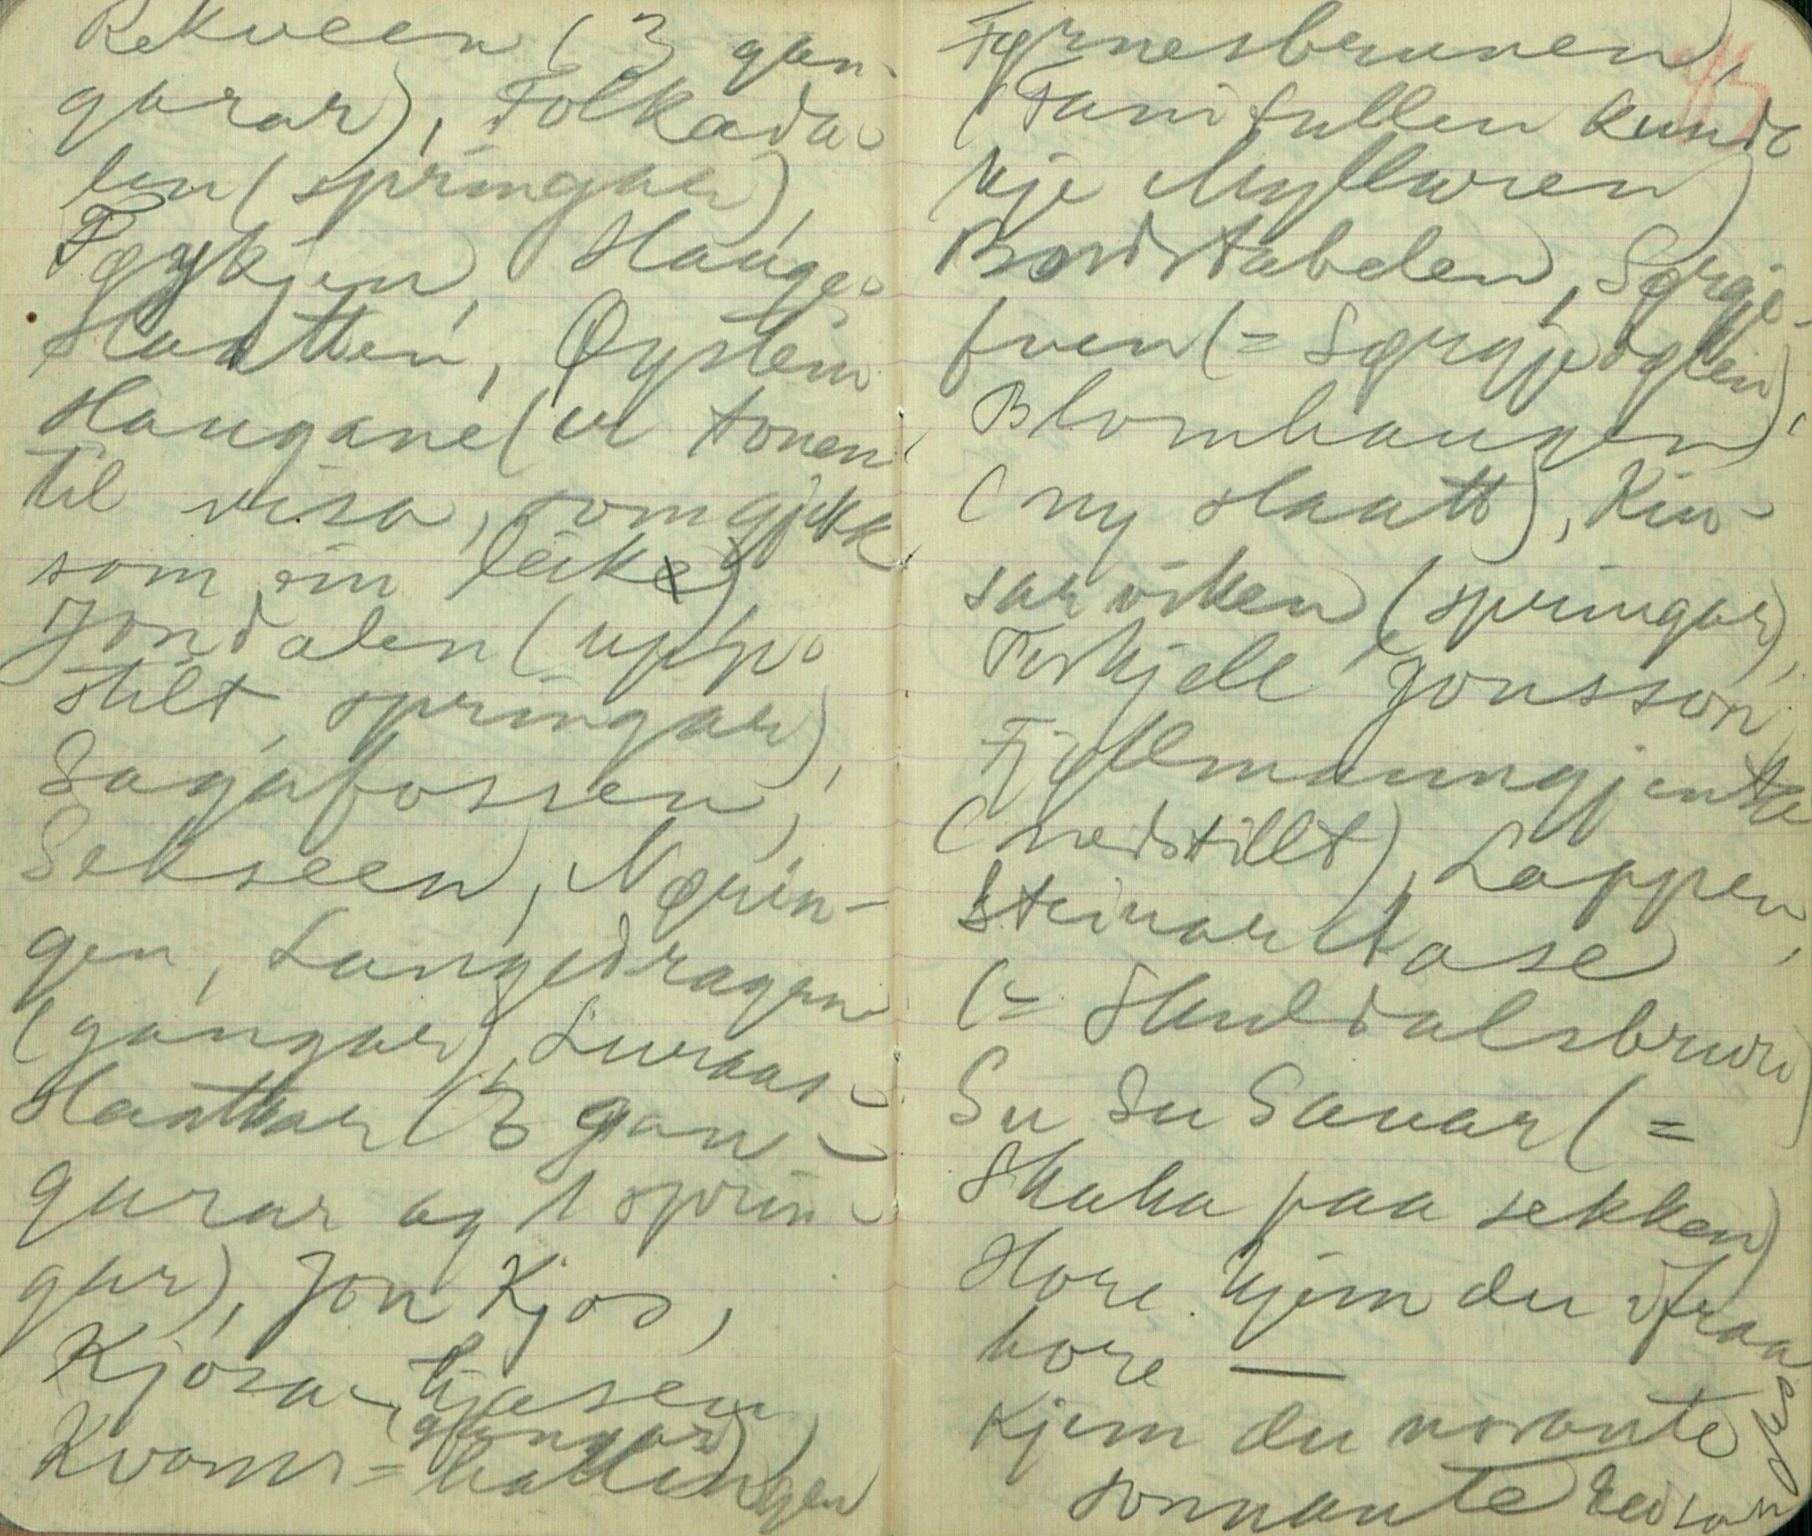 Rekveen (3 gan-
garar), Folkeda-
len (springar),
Fykjen, Hauge-
slaatten, Øystein
Haugane (er tonen
til visa, som gjekk
som ein leik)
Jondalen (upp-
stilt springar),
Sagafossen,
Sekseen, Nørin-
gen, Langedragen
(gangar), Luraas-
slaattar (3 gan-
garar og 1 sprin-
gar), Jon Kjos,
Kjosa-hjasen
(gangar)
Kvams-hallingen
Fyrnesbrunen,
(Tarifullen kunde
kje Myllaren)
Bordstabelen, Sørgje-
fuen (= Sørgjedølen),
Blomhaugen
(ny slaatt), Kin-
sarviken (springar),
Torkjell Jonsson
Fjøllmanngjenta
(nedstillt), Lappen,
Steinar Aase
(= Skuldalsbruri)
Su Su Sauar (=
Skaka paa sekken)
Hore kjem du ifraa
hore —
Kjem du norante
sonnante